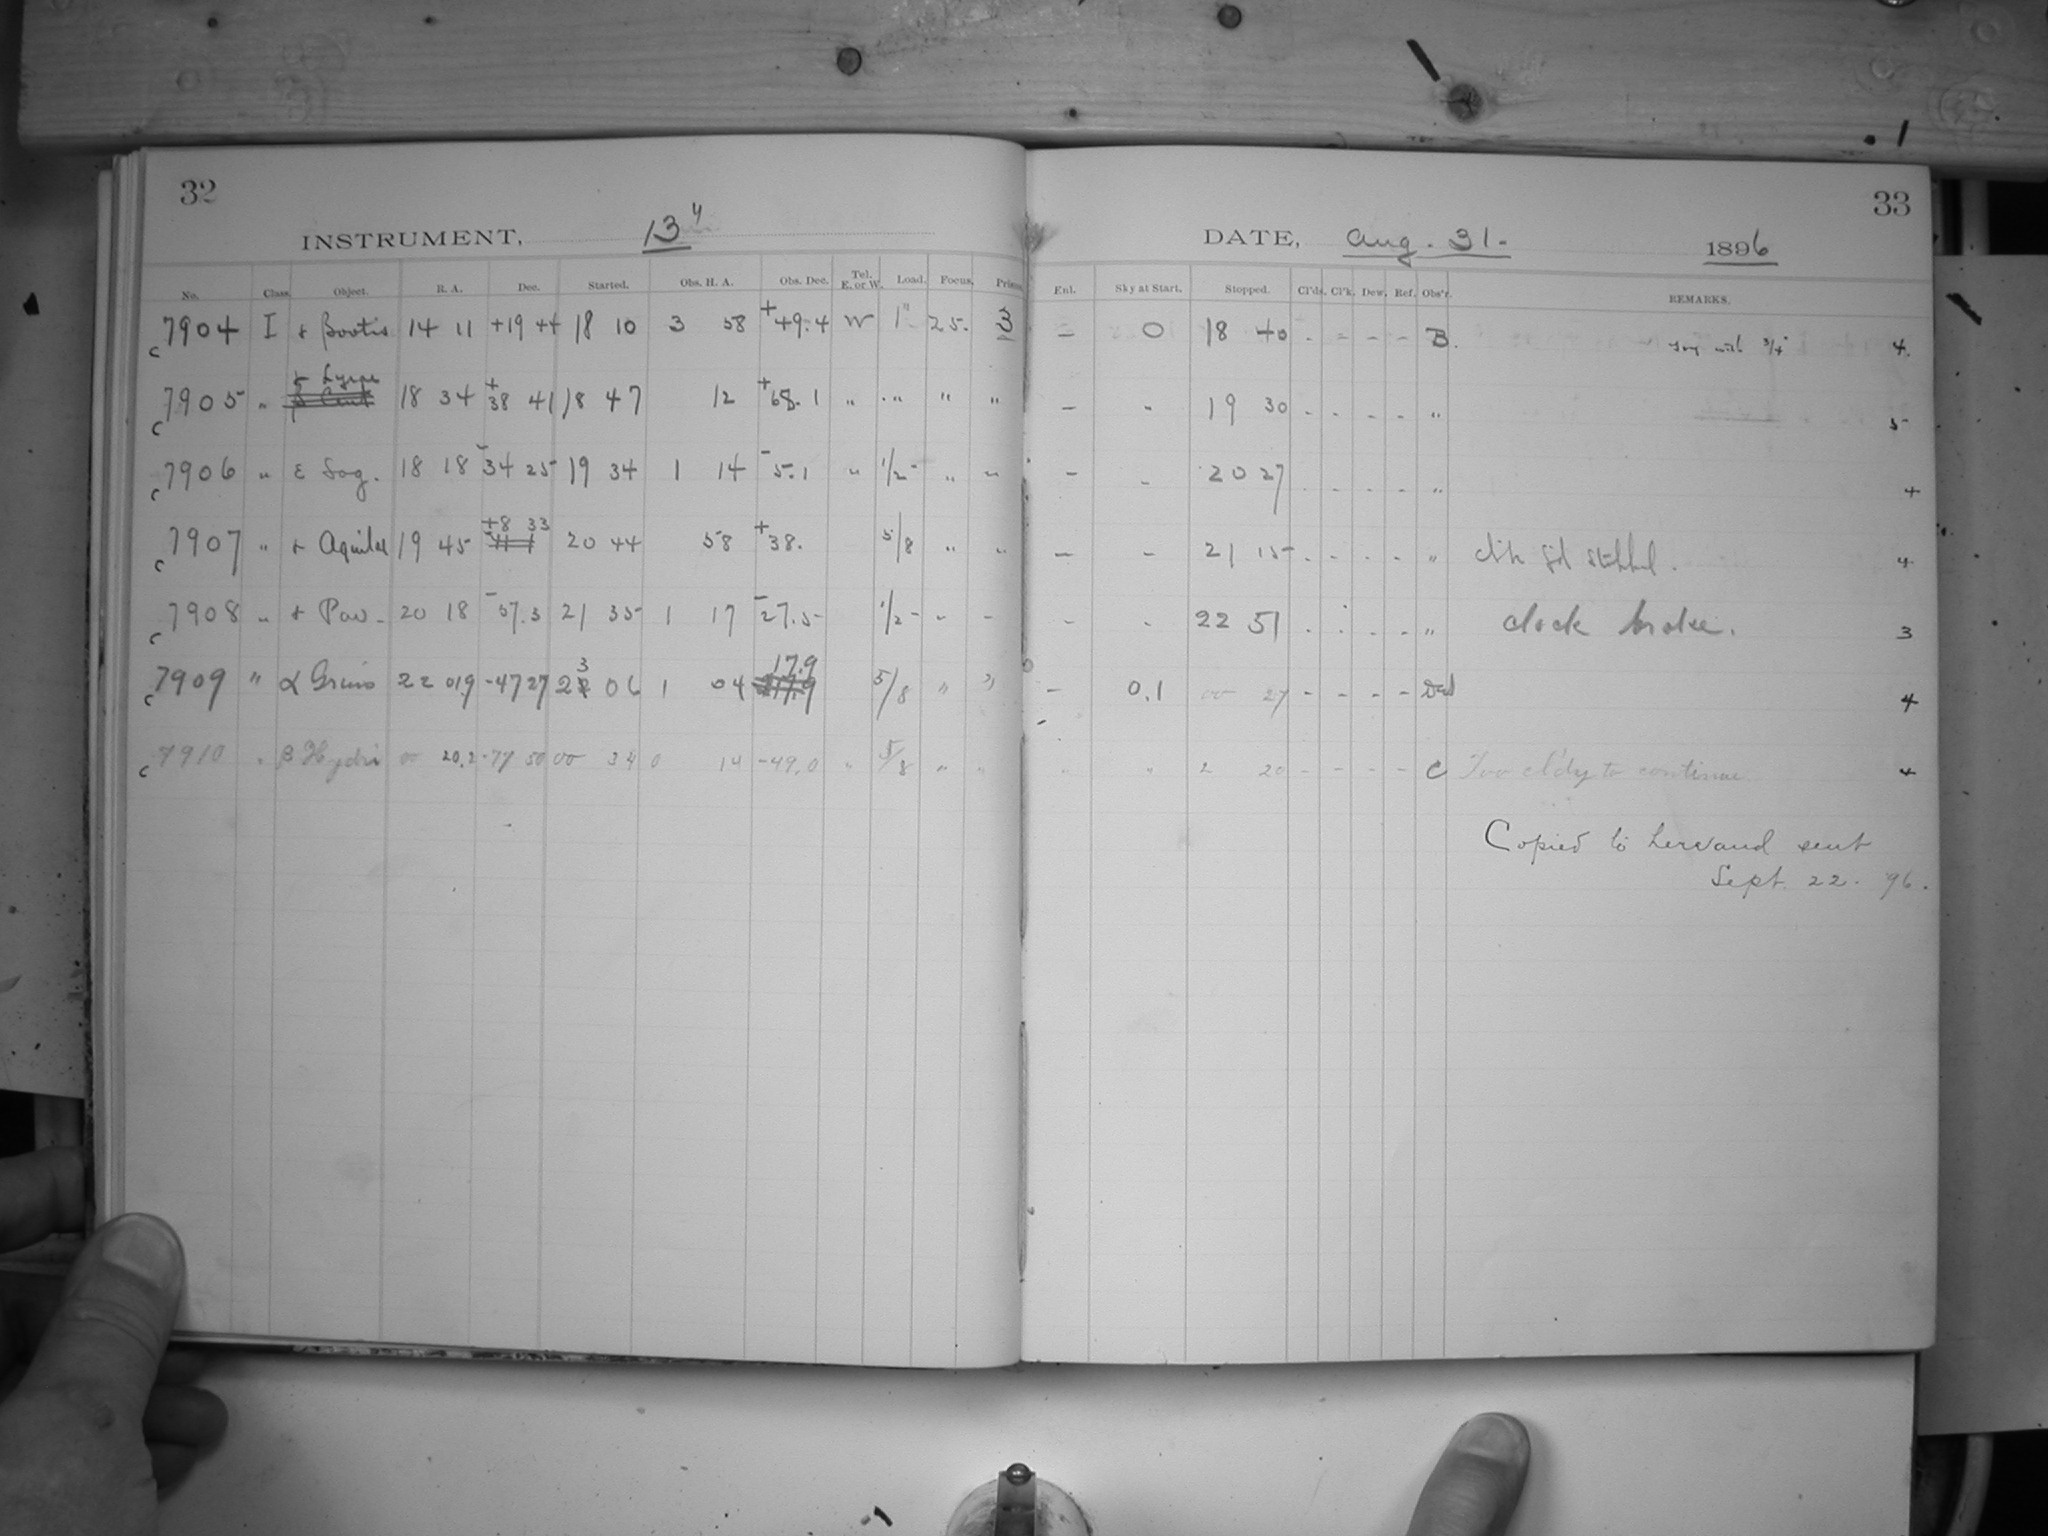 32
33
INSTRUMENT, 13"
DATE, Aug. 31. 1896
No. Class. Object. R. A. Dec. Started. Obs. H. A. Obs. Dec. Tel. E. or W. Load. Focus. Prism
Enl. Sky at Start. Stopped. Cl'ds. Cl'k. Dew. Ref. Obs'r. REMARKS.
c 7904 I α Bootis 14 11 +19 44 18 10 3 58 +49.4 W 1" 25. 3 — 0 18 40 - - - - B. 4.
c 7905 " α Lyrae 18 34 +38 41 18 47 12 +68.1 " " " " — " 19 30 - - - - " 5
c 7906 " ε Sag. 18 18 -34 25 19 34 1 14 -5.1 " 1/2 " " — " 20 27 - - - - " 4
c 7907 " α Aquilae 19 45 +8 33 20 44 58 +38. 5/8 " " — " 21 15 - - - - " 4
c 7908 " α Pav. 20 18 -57.3 21 35 1 17 -27.5 1/2 " " - " 22 51 - - - - " clock broke. 3
c 7909 " α Gruis 22 01.9 -47 27 23 06 1 04 17.9 5/8 " " — 0.1 00 27 - - - - 4
c 7910 " β Hydri 00 20.2 -77 50 00 34 0 14 -49.0 " 5/8 " " " " 2 20 - - - - C Too cl'dy to continue. 4
Copied to and sent
Sept. 22. '96.